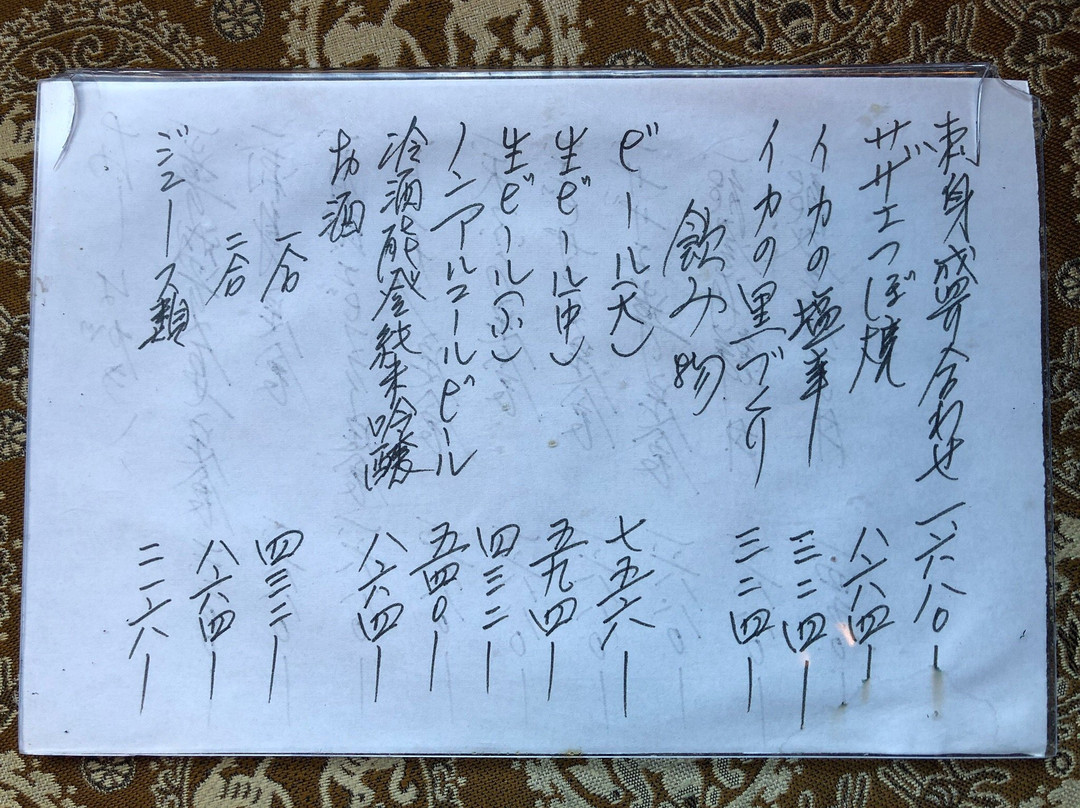 刺身盛合わせ 一六八〇ー
サザエつぼ焼 八六四ー
イカの塩辛 三二四ー
イカの黒づくり 三二四ー
飲み物
ビール(大) 七五六ー
生ビール(中) 五九四ー
生ビール(小) 四三二ー
ノンアルコールビール 五四〇ー
冷酒能登純米吟醸 八六四ー
お酒
一合 四三二ー
二合 八六四ー
ジュース類 二一六ー